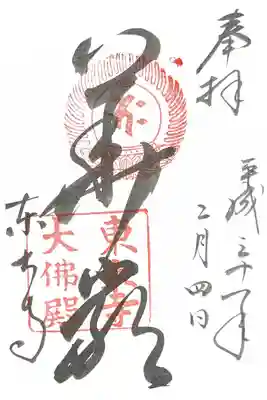 奉拝
平成三十一年
二月四日
華厳
東大寺
東大寺
大佛殿